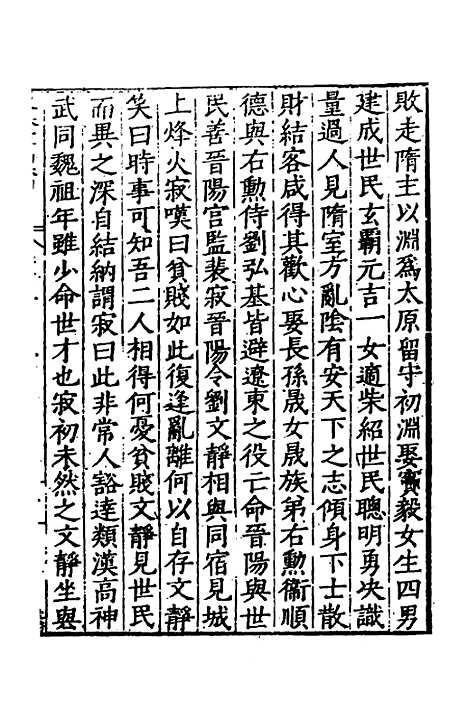 敗走隋主以淵爲太原留守初淵娶竇毅女生四男
建成世民玄霸元吉一女適柴紹世民聰明勇决識
量過人見隋室方亂隂有安天下之志傾身下士散
財結客咸得其歡心娶長孫晟女晟族弟右勲衞順
德與右勲侍劉弘基皆避遼東之役亡命晉陽與世
民善晉陽宫監裴寂晉陽令劉文靜相與同宿見城
上烽火寂嘆曰貧賤如此復逢亂離何以自存文靜
笑曰時事可知吾二人相得何憂貧賤文靜見世民
而異之深自結納謂寂曰此非常人豁達類漢高神
武同魏祖年雖少命世才也寂初未然之文靜坐與